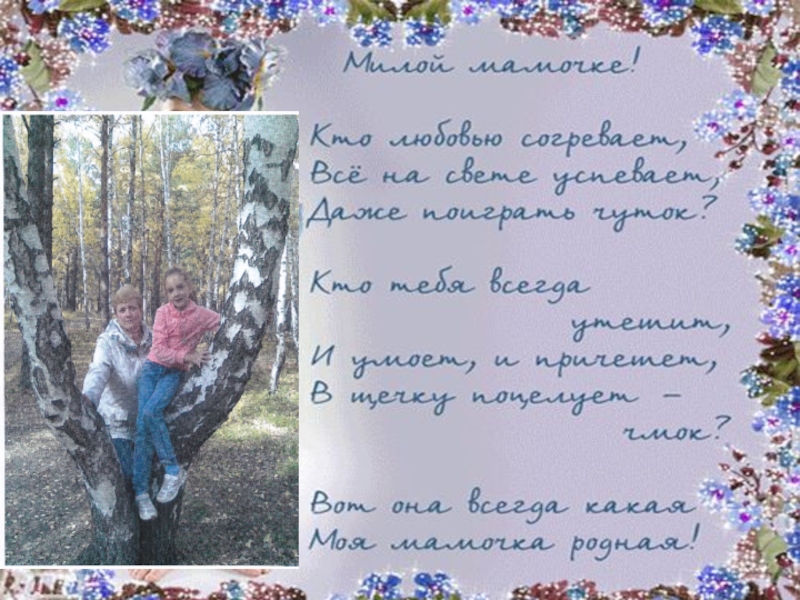 Милой мамочке!
Кто любовью согревает,
Всё на свете успевает,
Даже поиграть чуток?
Кто тебя всегда
утешит,
И умоет, и причешет,
В щечку поцелует –
чмок?
Вот она всегда какая
Моя мамочка родная!